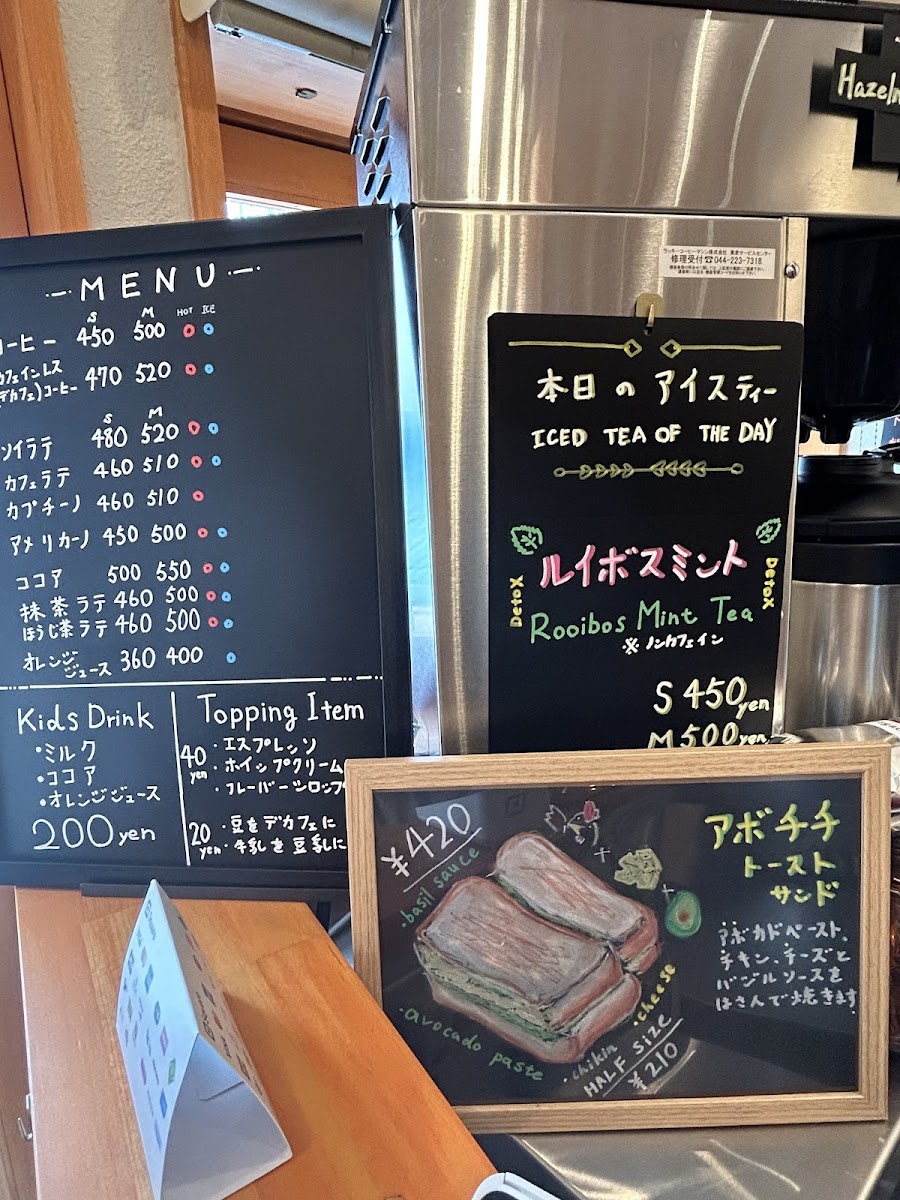 MENU
S M HOT ICE
コーヒー 450 500
カフェインレス
(デカフェ)コーヒー 470 520
S M
ソイラテ 480 520
カフェラテ 460 510
カプチーノ 460 510
アメリカーノ 450 500
ココア 500 550
抹茶ラテ 460 500
ほうじ茶ラテ 460 500
オレンジ
ジュース 360 400
Kids Drink
・ミルク
・ココア
・オレンジジュース
200yen
Topping Item
40yen
・エスプレッソ
・ホイップクリーム
・フレーバーシロップ
20yen
・豆をデカフェに
・牛乳を豆乳に
ラッキーコーヒーマシン株式会社 東京サービスセンター
修理受付☎044-223-7318
Hazeln
本日のアイスティー
ICED TEA OF THE DAY
Detox
ルイボスミント
Detox
Rooibos Mint Tea
※ノンカフェイン
S 450yen
M 500yen
¥420
・basil sauce
・avocado paste
・chikin
・cheese
HALF SIZE
¥210
アボチチ
トースト
サンド
アボカドペースト、
チキン、チーズと
バジルソースを
はさんで焼きます